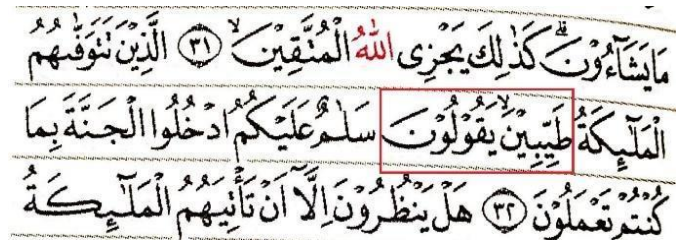 مَا يَشَآءُوْنَۗ كَذٰلِكَ يَجْزِى اللّٰهُ الْمُتَّقِيْنَۙ ﴿٣١﴾ الَّذِيْنَ تَتَوَفّٰىهُمُ
الْمَلٰٓىِٕكَةُ طَيِّبِيْنَۙ يَقُوْلُوْنَ سَلٰمٌ عَلَيْكُمُ ادْخُلُوا الْجَنَّةَ بِمَا
كُنْتُمْ تَعْمَلُوْنَ ﴿٣٢﴾ هَلْ يَنْظُرُوْنَ اِلَّآ اَنْ تَأْتِيَهُمُ الْمَلٰٓىِٕكَةُ